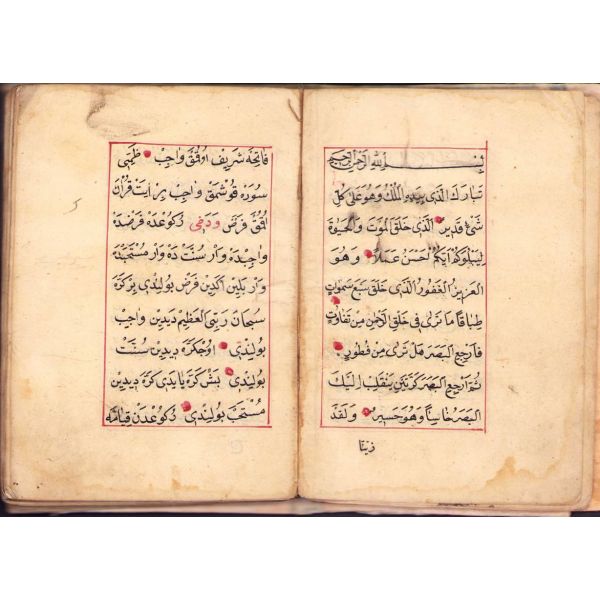 بسم الله الرحمن الرحيم
تبارك الذي بيده الملك وهو على كل
شئ قدير الذي خلق الموت والحيوة
ليبلوكم ايكم احسن عملا وهو
العزيز الغفور الذي خلق سبع سموات
طباقا ما ترى في خلق الرحمن من تفاوت
فارجع البصر هل ترى من فطور
ثم ارجع البصر كرتين ينقلب اليك
البصر خاسئا وهو حسير ولقد
زينا
فاتحۀ شريف اوقمق واجب ظمئ
سوره قوشمق واجب بر ايت قران
اوقمق فرض ودخى ركوعده فرضده
واجبده وار سنت ده وار مستحبده
وار بلين اكدين فرض بولندي بر كره
سبحان ربي العظيم ديدين واجب
بولندي اوچ كره ديدين سنت
بولندي بش كره يا يدي كره ديدين
مستحب بولندي ركوعدن قيامه